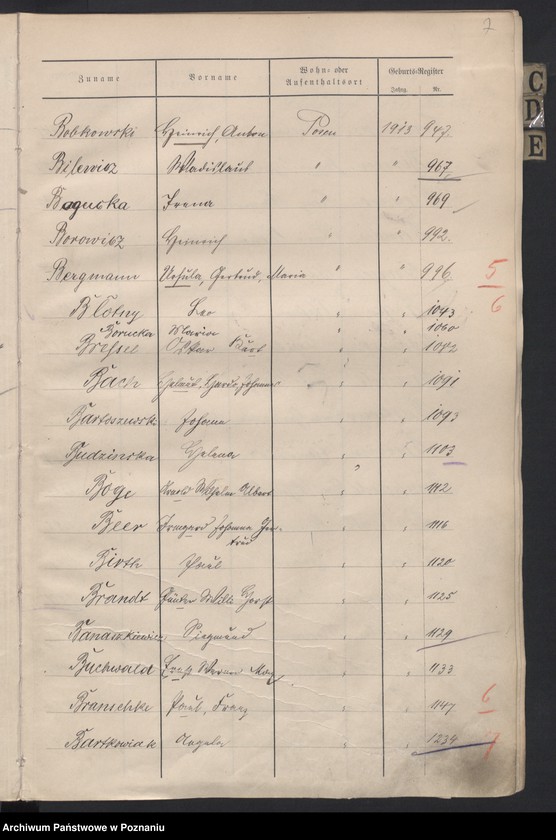 7
Zuname Vorname Wohn- oder Aufenthaltsort Geburts-Register
Jahrg. Nr.
C
D
E
Bobkowski Heinrich, Anton Posen 1913 947.
Bilewicz Wladislaus " " 967
Boguska Irena " " 969
Borowicz Heinrich " " 992.
Bergmann Ursula, Gertrud, Maria " " 996
5
6
Blotny Leo 1043
Borucka Maria 1060
Bressel Kurt 1072
Bach Johannes 1091
Bartoszewski Johann 1093
Budzinska Helena 1103
Boge Wilhelm Albert 1112
Beer Irmgard Johanna Ger-
trud 1116
Birth Paul 1120
Brandt Günter Willi Horst 1125
Banaszkiewicz Siegmund 1129
Buchwald Ernst Werner Max 1133
Branschke Paul, Franz 1147
6
Bartkowiak Angela 1234
Archiwum Państwowe w Poznaniu